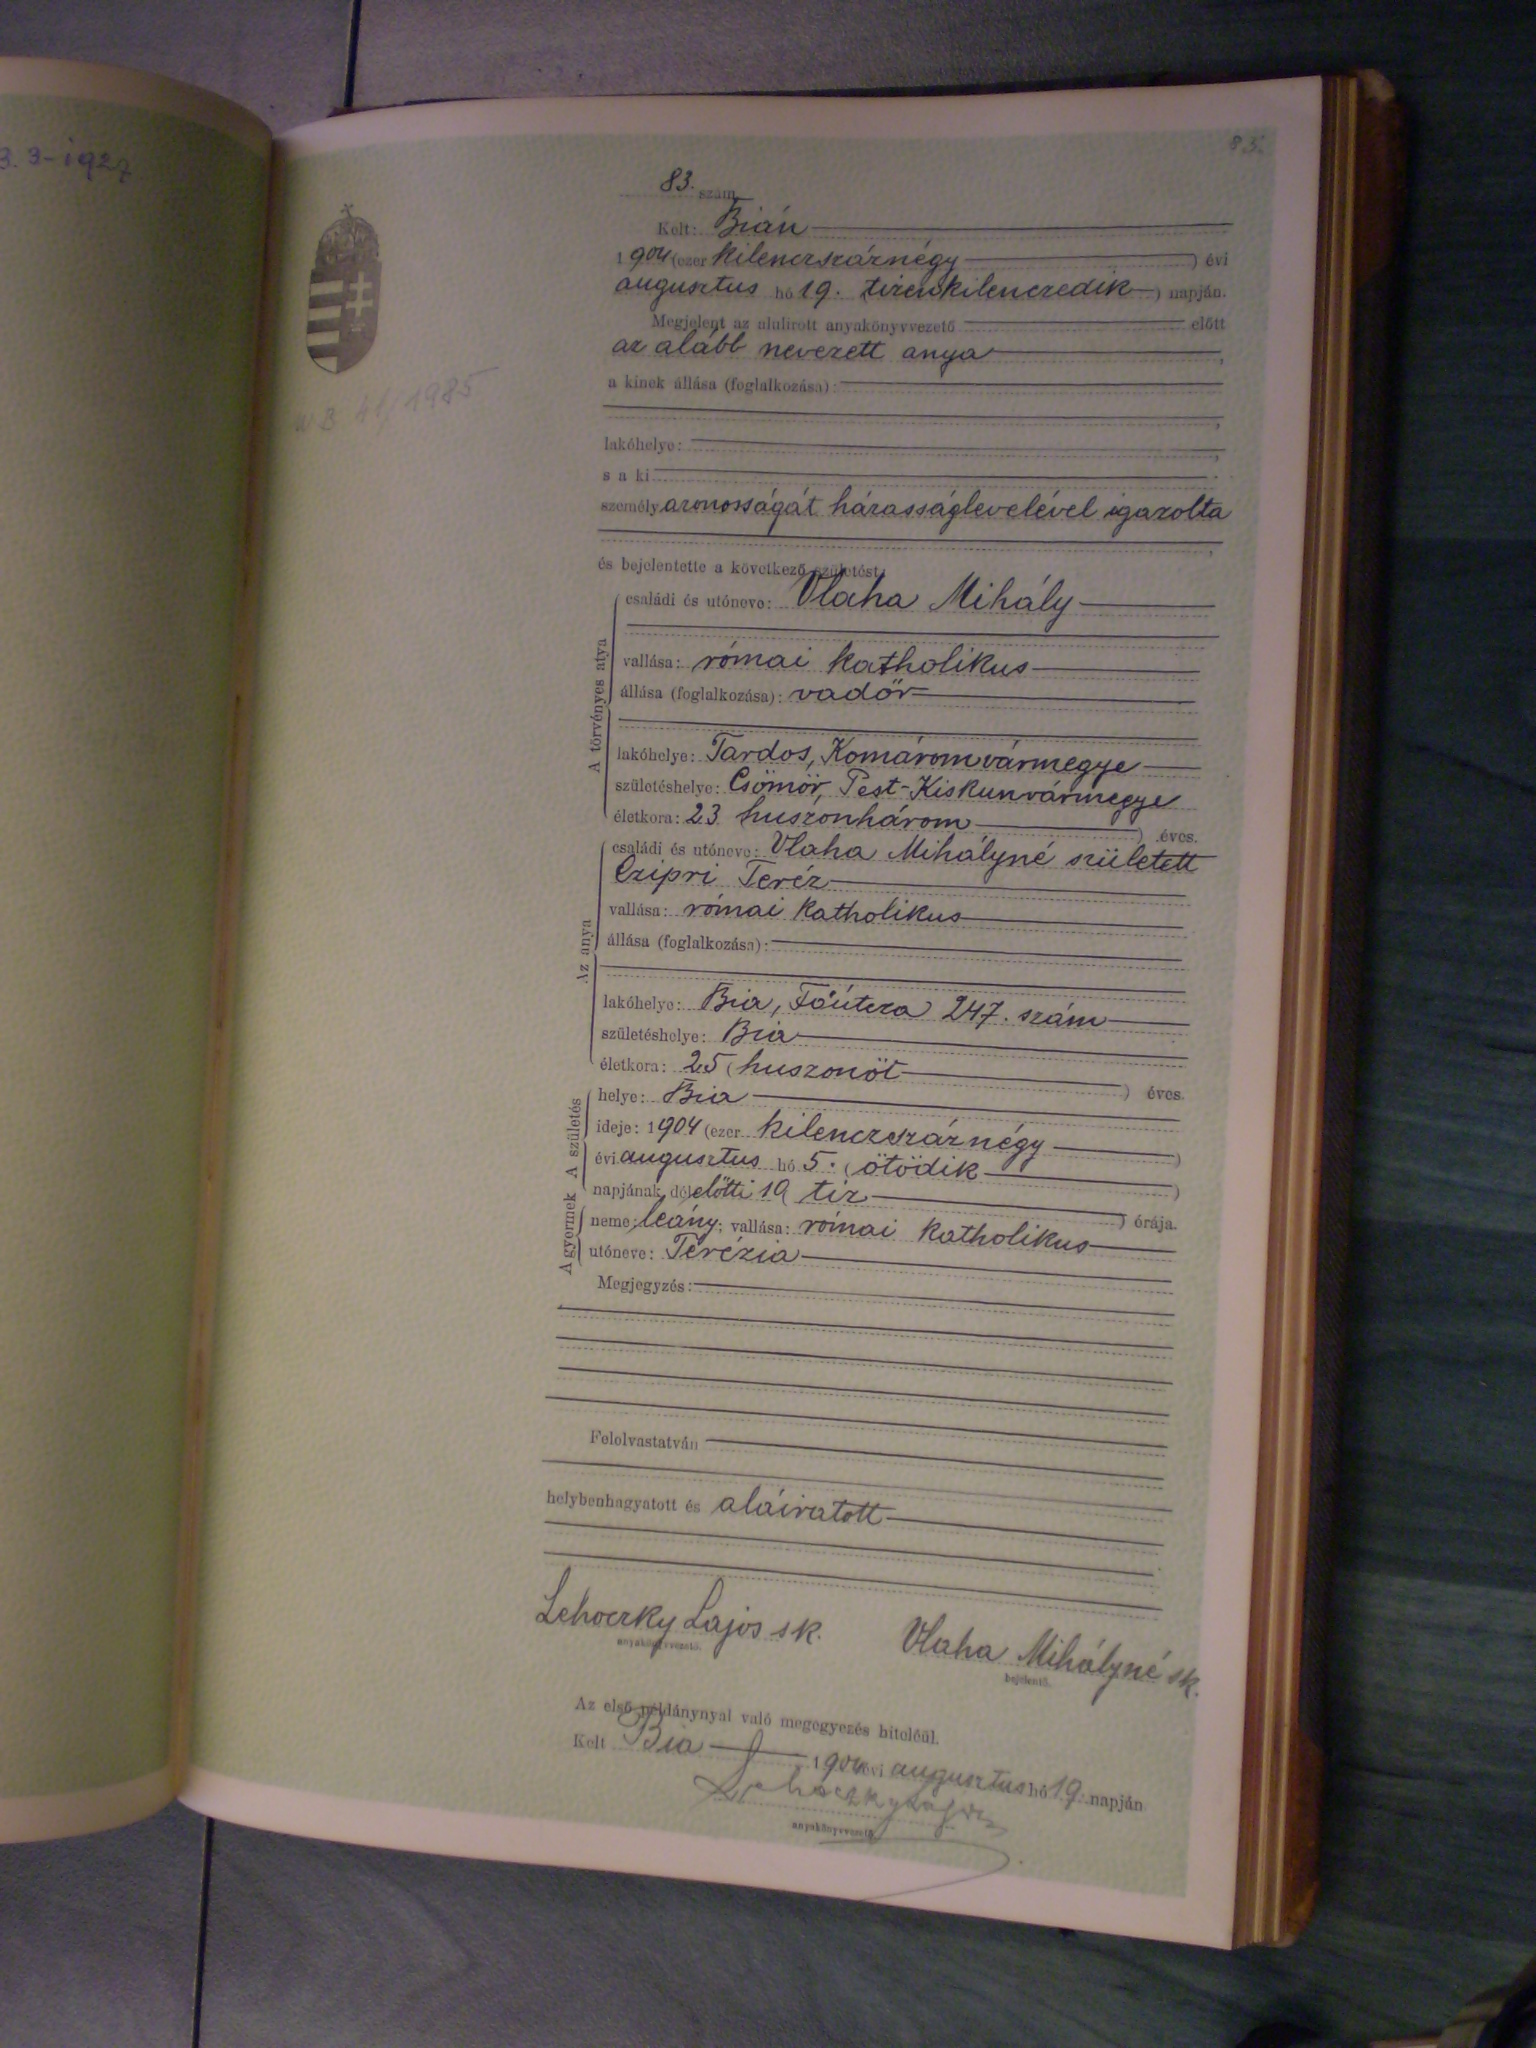 3. 3-1927
83.
83. szám
Kelt: Bián
1904 (ezer kilenczszáznégy ) évi
augusztus hó 19. tizenkilenczedik ) napján.
Megjelent az alulirott anyakönyvvezető előtt
az alább nevezett anya ,
a kinek állása (foglalkozása):
lakóhelye:
s a ki
személyazonosságát házasságlevelével igazolta
és bejelentette a következő születést:
A törvényes atya
családi és utóneve: Vlaha Mihály
vallása: római katholikus
állása (foglalkozása): vadőr
lakóhelye: Tardos, Komáromvármegye
születéshelye: Csömör, Pest-Kiskunvármegye
életkora: 23 huszonhárom ) éves.
Az anya
családi és utóneve: Vlaha Mihályné született
Czipri Teréz
vallása: római katholikus
állása (foglalkozása):
lakóhelye: Bia, Főútcza 247. szám
születéshelye: Bia
életkora: 25 (huszonöt ) éves.
A születés
helye: Bia
ideje: 1904 (ezer kilenczszáznégy )
évi augusztus hó 5. (ötödik )
napjának délelőtti 10 tiz ) órája.
A gyermek
neme: leány; vallása: római katholikus
utóneve: Terézia
Megjegyzés:
Felolvastatván
helybenhagyatott és aláiratott
Lehoczky Lajos sk. Vlaha Mihályné sk.
anyakönyvvezető. bejelentő.
Az első példánynyal való megegyezés hiteléül.
Kelt Bia 1904 évi augusztus hó 19. napján
Lehoczky Lajos
anyakönyvvezető.